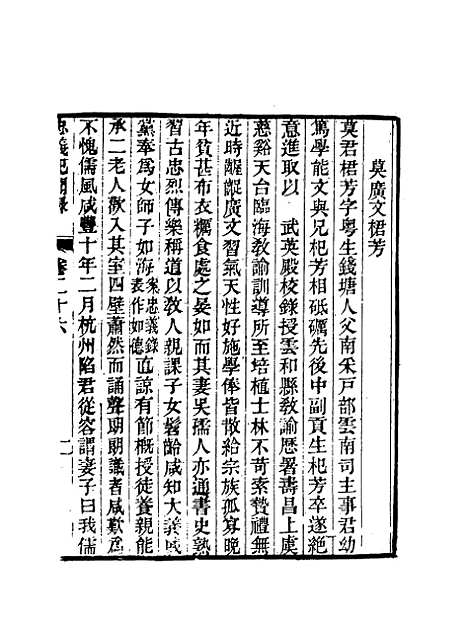 莫廣文桾芳
莫君桾芳字粵生錢塘人父南采戸部雲南司主事君幼
篤學能文與兄杞芳相砥礪先後中副貢生杞芳卒遂絶
意進取以 武英殿校錄授雲和縣敎諭歴署壽昌上虞
慈谿天台臨海敎諭訓導所至培植士林不苛索贄禮無
近時齷齪廣文習氣天性好施學俸皆散給宗族孤寡晚
年貧甚布衣糲食處之晏如而其妻吳孺人亦通書史熟
習古忠烈傳樂稱道以敎人親課子女髫齡咸知大義戚
黨奉爲女師子如海案忠義錄表作如德直諒有節概授徒養親能
承二老人歡入其室四壁蕭然而誦聲朗朗識者咸歎爲
不愧儒風咸豐十年二月杭州陷君從容謂妻子曰我儒
忠義紀聞錄 卷二十六 二